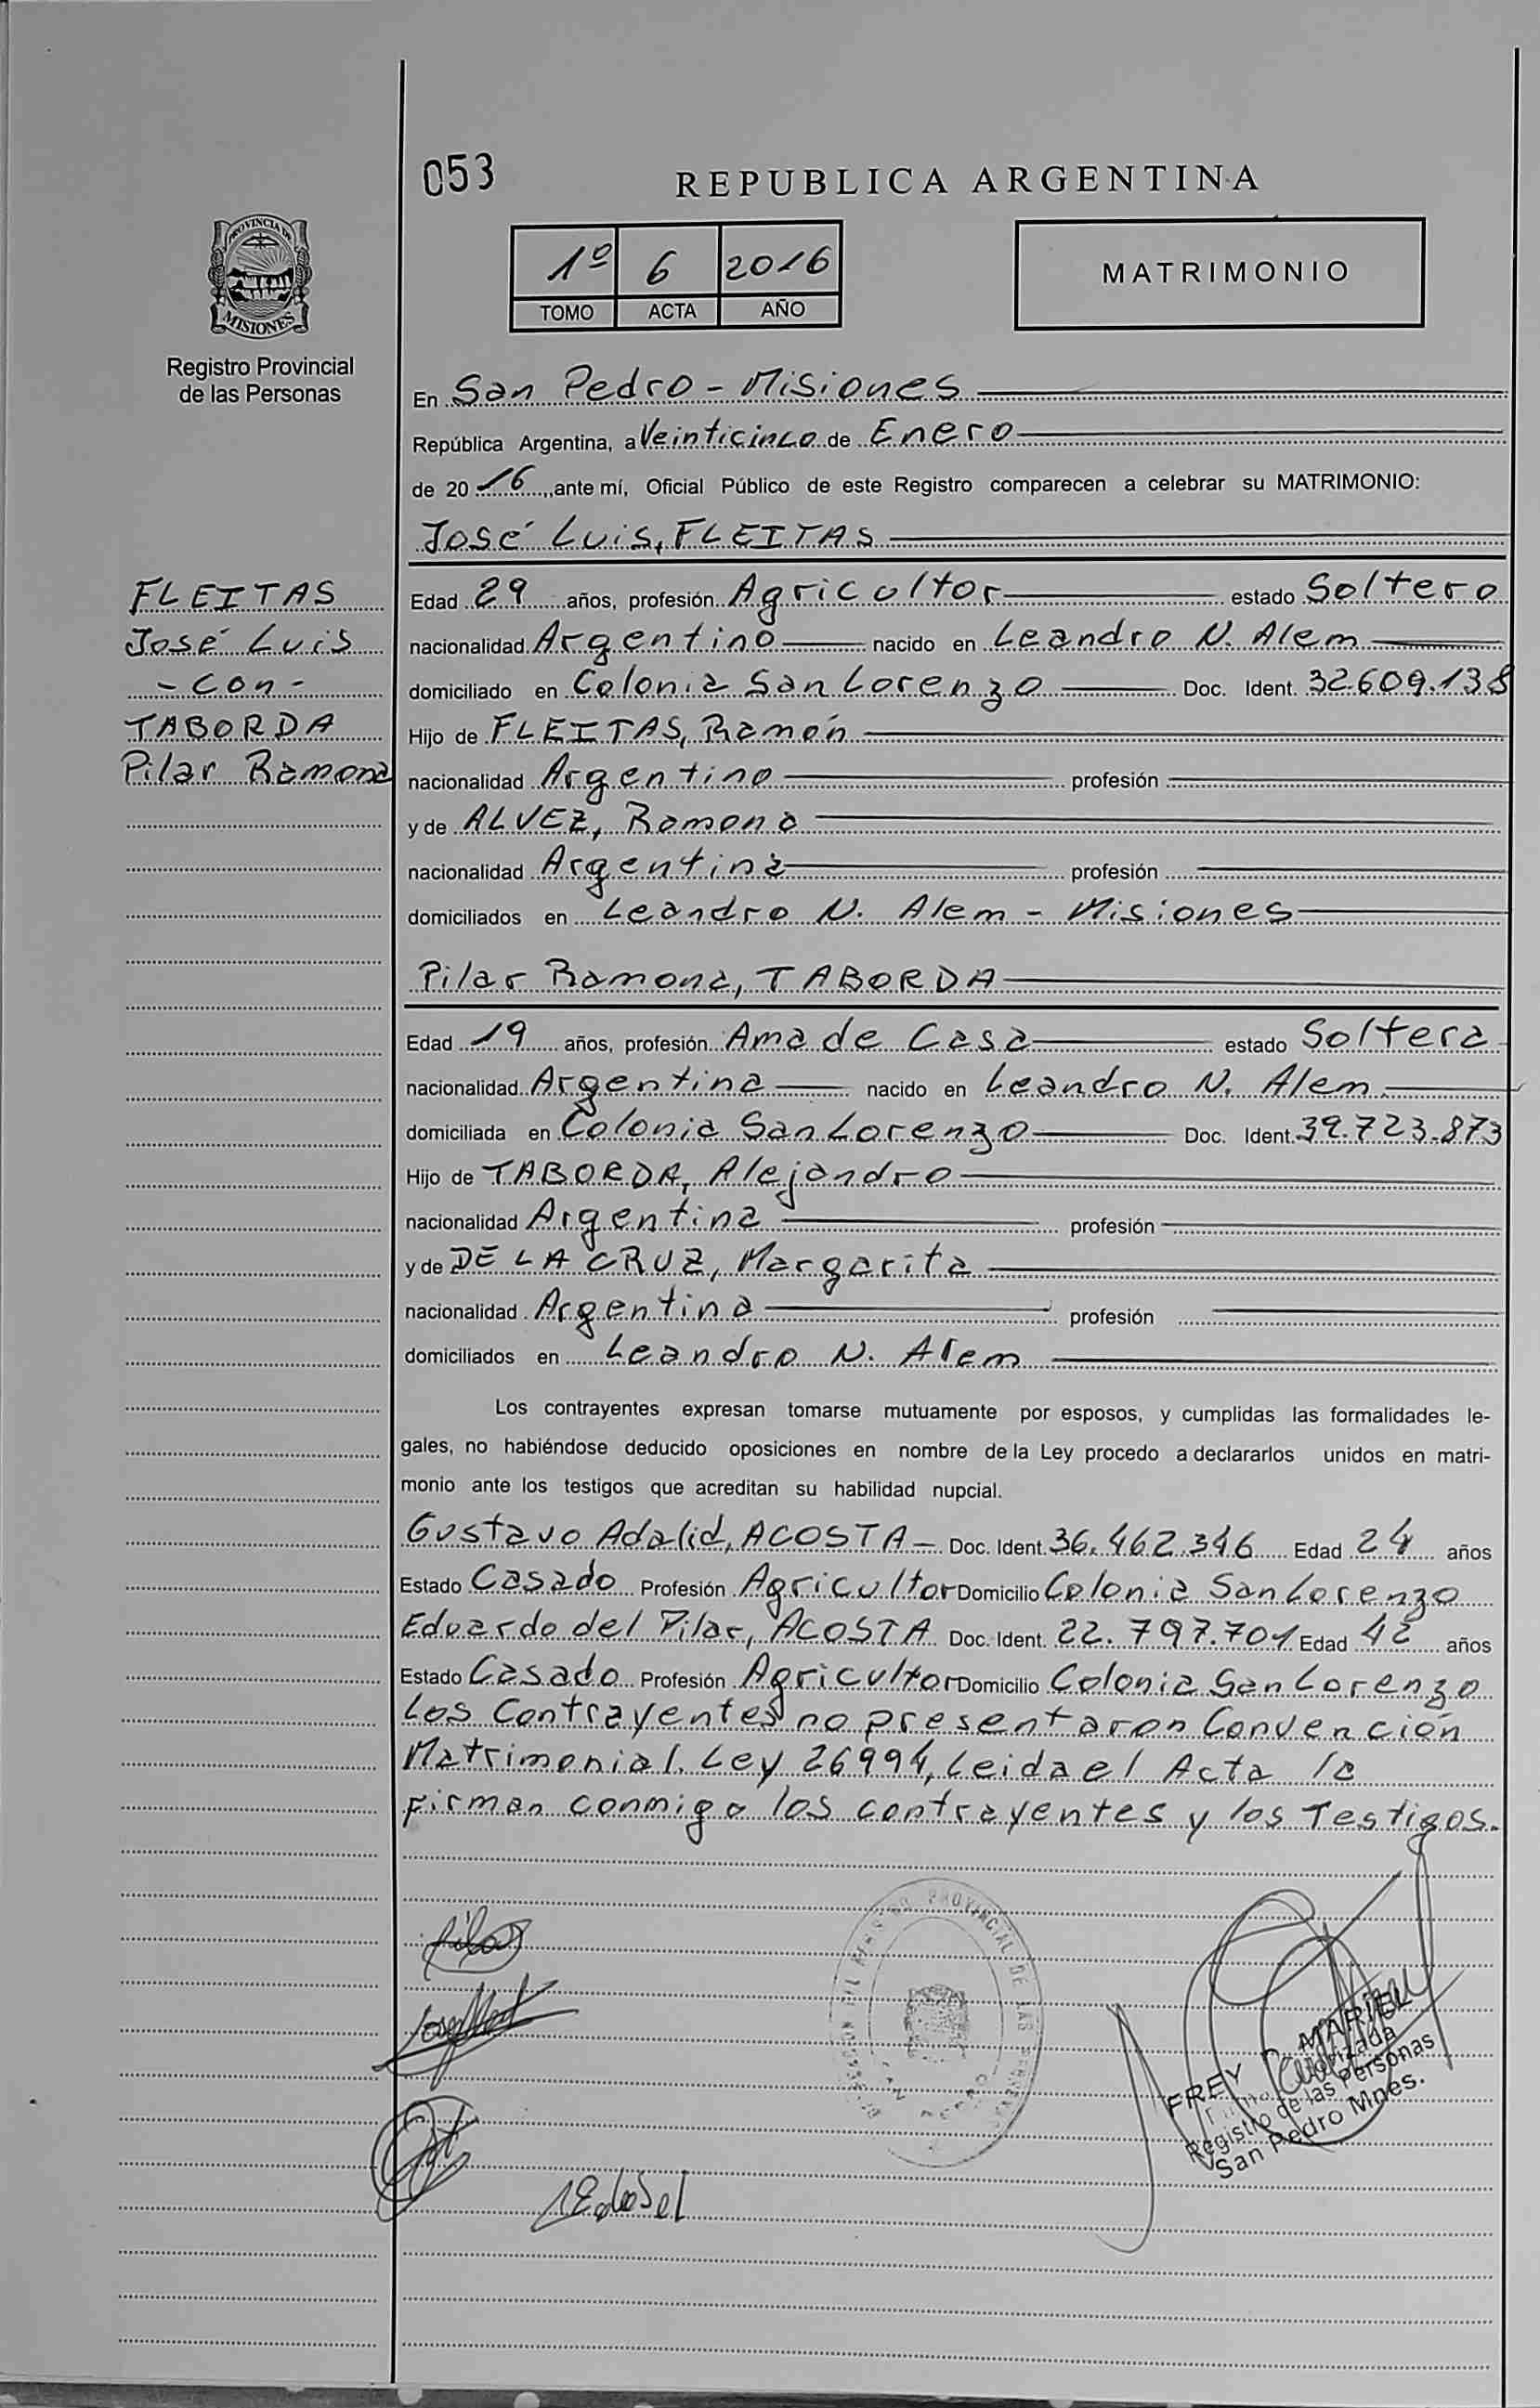 053
REPUBLICA ARGENTINA
PROVINCIA DE
MISIONES
Registro Provincial
de las Personas
1º 6 2016
TOMO ACTA AÑO
MATRIMONIO
En San Pedro - Misiones
República Argentina, a Veinticinco de Enero
de 20 16, ante mí, Oficial Público de este Registro comparecen a celebrar su MATRIMONIO:
José Luis, FLEITAS
FLEITAS
José Luis
- con -
TABORDA
Pilar Ramona
Edad 29 años, profesión Agricultor estado Soltero
nacionalidad Argentino nacido en Leandro N. Alem
domiciliado en Colonia San Lorenzo Doc. Ident. 32.609.138
Hijo de FLEITAS, Ramón
nacionalidad Argentino profesión
y de ALVEZ, Ramona
nacionalidad Argentina profesión
domiciliados en Leandro N. Alem - Misiones
Pilar Ramona, TABORDA
Edad 19 años, profesión Ama de Casa estado Soltera
nacionalidad Argentina nacido en Leandro N. Alem
domiciliada en Colonia San Lorenzo Doc. Ident. 39.723.873
Hijo de TABORDA, Alejandro
nacionalidad Argentina profesión
y de DE LA CRUZ, Margarita
nacionalidad Argentina profesión
domiciliados en Leandro N. Alem
Los contrayentes expresan tomarse mutuamente por esposos, y cumplidas las formalidades le-
gales, no habiéndose deducido oposiciones en nombre de la Ley procedo a declararlos unidos en matri-
monio ante los testigos que acreditan su habilidad nupcial.
Gustavo Adalid, ACOSTA - Doc. Ident. 36.462.346 Edad 24 años
Estado Casado Profesión Agricultor Domicilio Colonia San Lorenzo
Eduardo del Pilar, ACOSTA Doc. Ident. 22.797.701 Edad 42 años
Estado Casado Profesión Agricultor Domicilio Colonia San Lorenzo
Los Contrayentes no presentaron Convención
Matrimonial. Ley 26994, Leida el Acta la
firman conmigo los contrayentes y los Testigos.
Pilar
PROVINCIAL DE LAS
FREY MARIEL
Autorizada
Registro de las Personas
San Pedro Mnes.